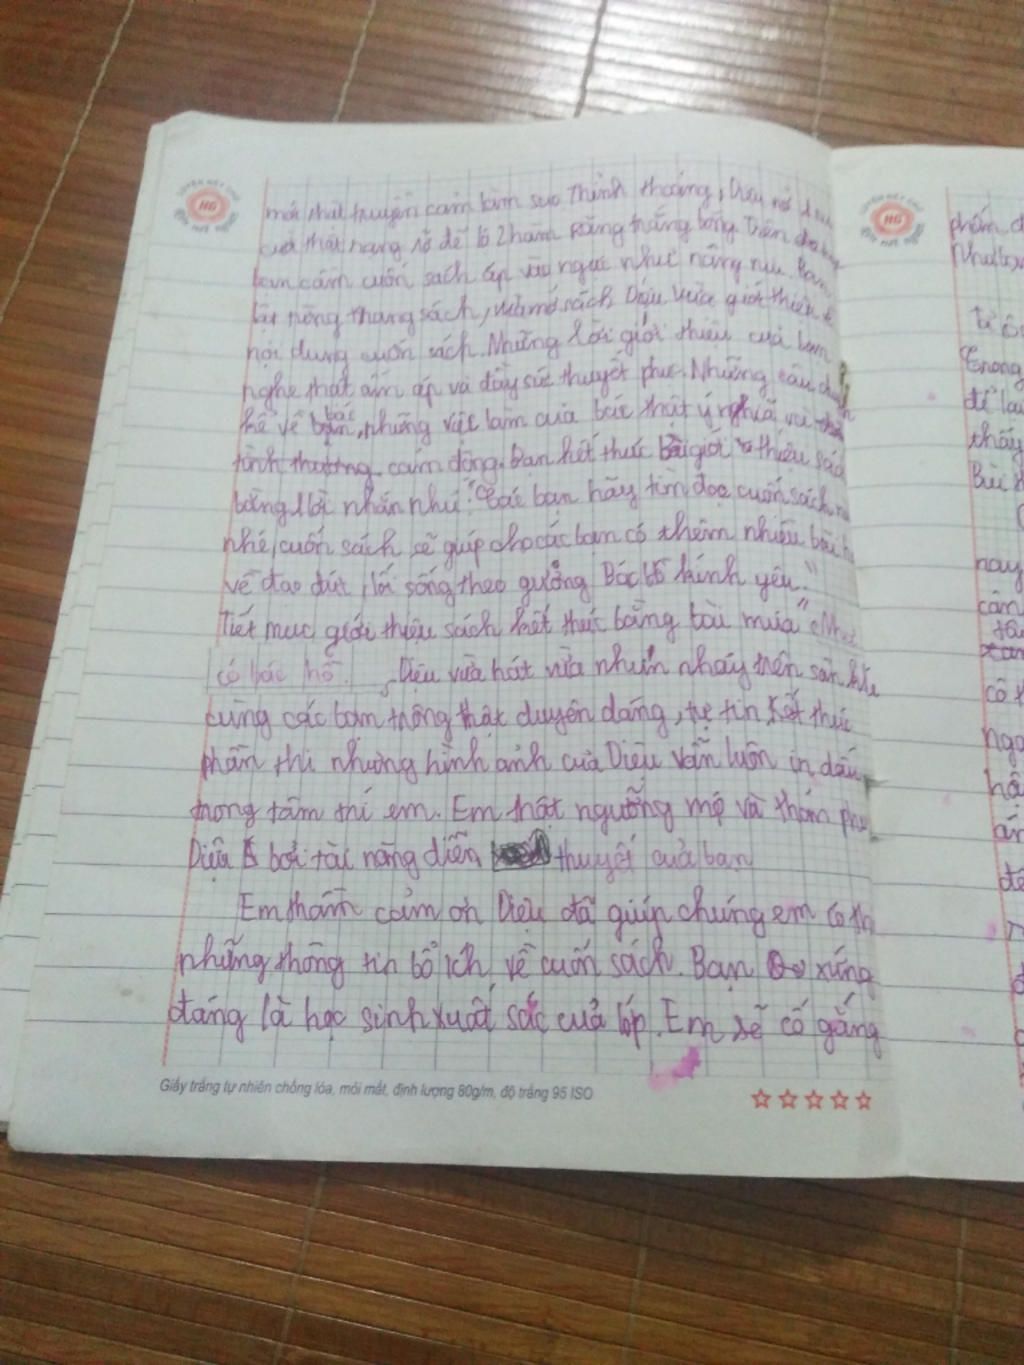 LUYỆN NÉT CHỮ
HG
mới thật truyền cảm làm sao Thỉnh thoảng, Diệu nở
cười thật rạng rỡ để lộ 2 hàm răng trắng bóng. Trên
bạn cầm cuốn sách áp vào ngực như nâng niu.
lại trang sách, vừa mở sách Diệu vừa giới thiệu
nội dung cuốn sách. Những lời giới thiệu của bạn
nghe thật ấm áp và đầy sức thuyết phục. Những câu
kể về bác, những việc làm của bác thật ý nghĩa và
tình thương cảm động. Bạn kết thúc Bài giới thiệu
bằng lời nhắn nhủ: "Các bạn hãy tìm đọc cuốn sách
nhé, cuốn sách sẽ giúp cho các bạn có thêm nhiều bài
về đạo đứt, lối sống theo gưởng Bác Hồ kính yêu."
Tiết mục giới thiệu sách kết thúc bằng bài múa "Như
có bác hồ. Diệu vừa hát vừa nhún nhảy trên sân
cùng các bạn trông thật duyên dáng, tự tin Kết thúc
phần thi nhưng hình ảnh của Diệu vẫn luôn in dấu
trong tâm trí em. Em thật ngưỡng mộ và thán
Diệu bởi tài năng diễn thuyết của bạn
Em thầm cảm ơn Diệu đã giúp chúng em có
những thông tin bổ ích về cuốn sách. Bạn xứng
đáng là học sinh xuất sắc của lớp. Em sẽ cố gắng
Giấy trắng tự nhiên chống lóa, mỏi mắt, định lượng 80g/m, độ trắng 95 ISO
HG
phấn
Như
từ
trong
để
thấy
Bùi
nay
cần
có